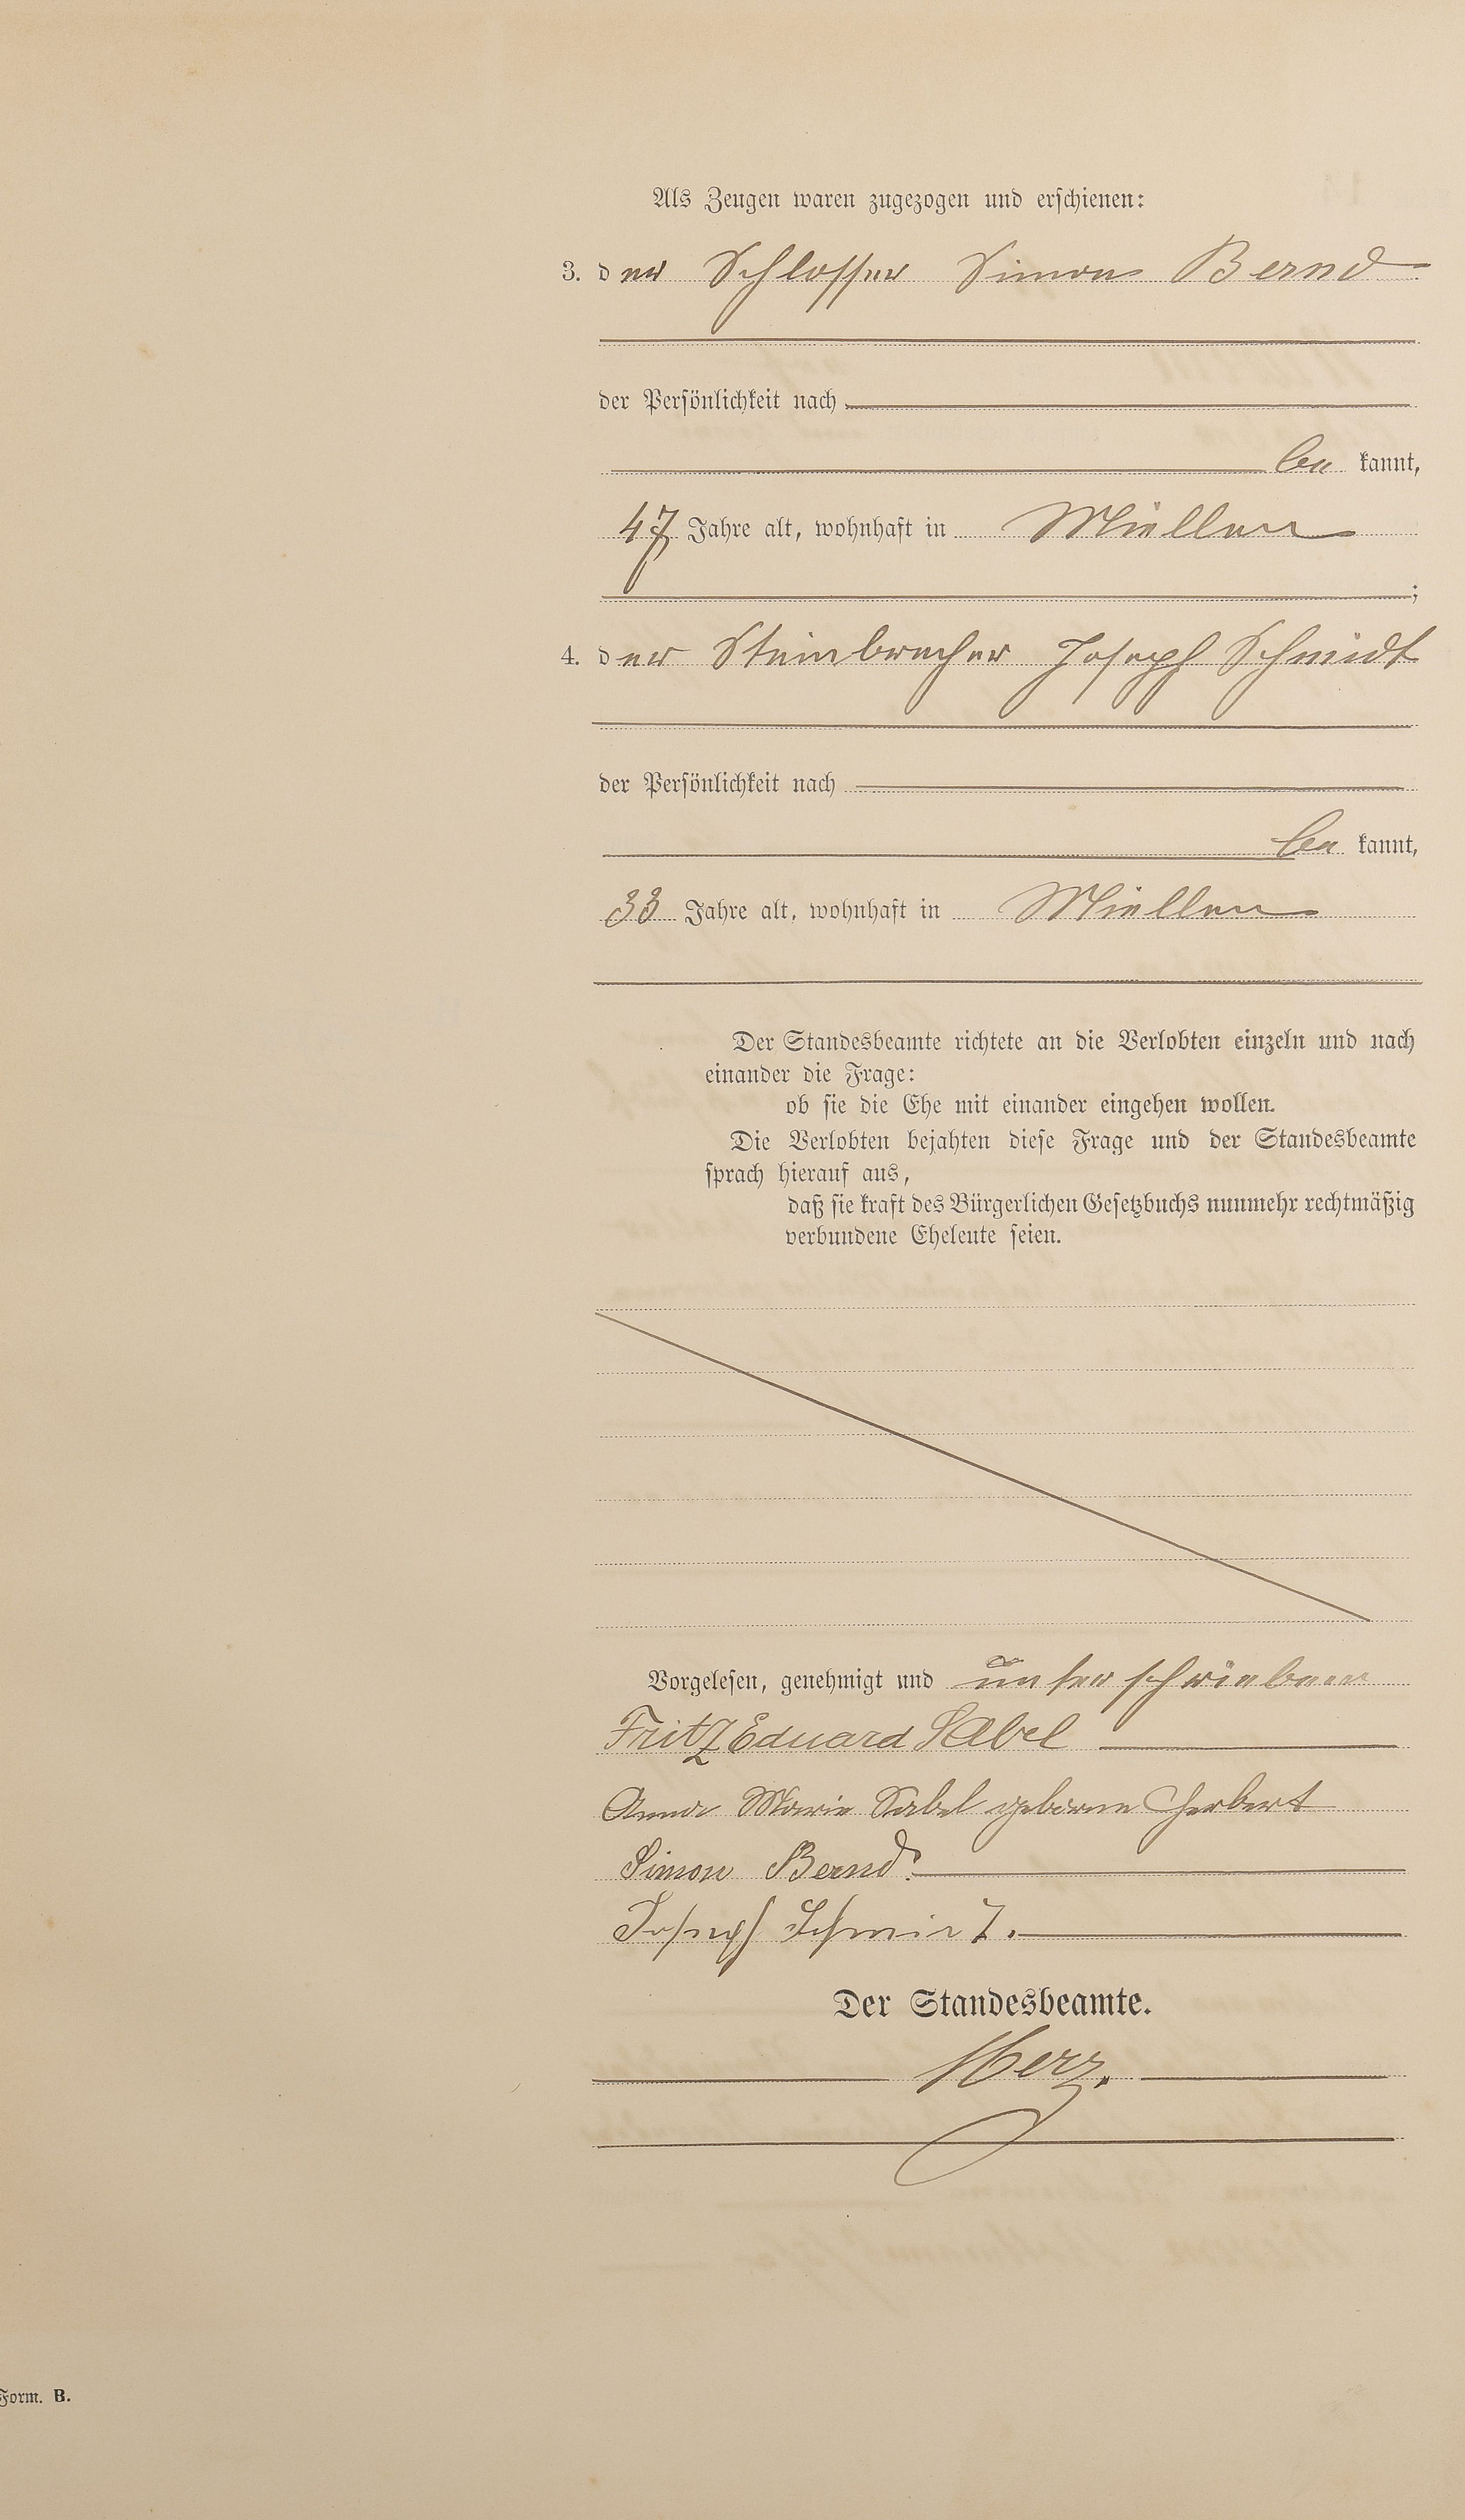 Als Zeugen waren zugezogen und erschienen:
3. der Schlosser Simon Bernd
der Persönlichkeit nach
be kannt,
47 Jahre alt, wohnhaft in Miellen
;
4. der Steinbrecher Joseph Schmidt
der Persönlichkeit nach
be kannt,
33 Jahre alt, wohnhaft in Miellen
Der Standesbeamte richtete an die Verlobten einzeln und nach
einander die Frage:
ob sie die Ehe mit einander eingehen wollen.
Die Verlobten bejahten diese Frage und der Standesbeamte
sprach hierauf aus,
daß sie kraft des Bürgerlichen Gesetzbuchs nunmehr rechtmäßig
verbundene Eheleute seien.
Vorgelesen, genehmigt und unterschrieben
Fritz Eduard Sabel
Anna Marie Sabel geborne Herbert
Simon Bernd.
Joseph Schmidt.
Der Standesbeamte.
Herz.
Form. B.